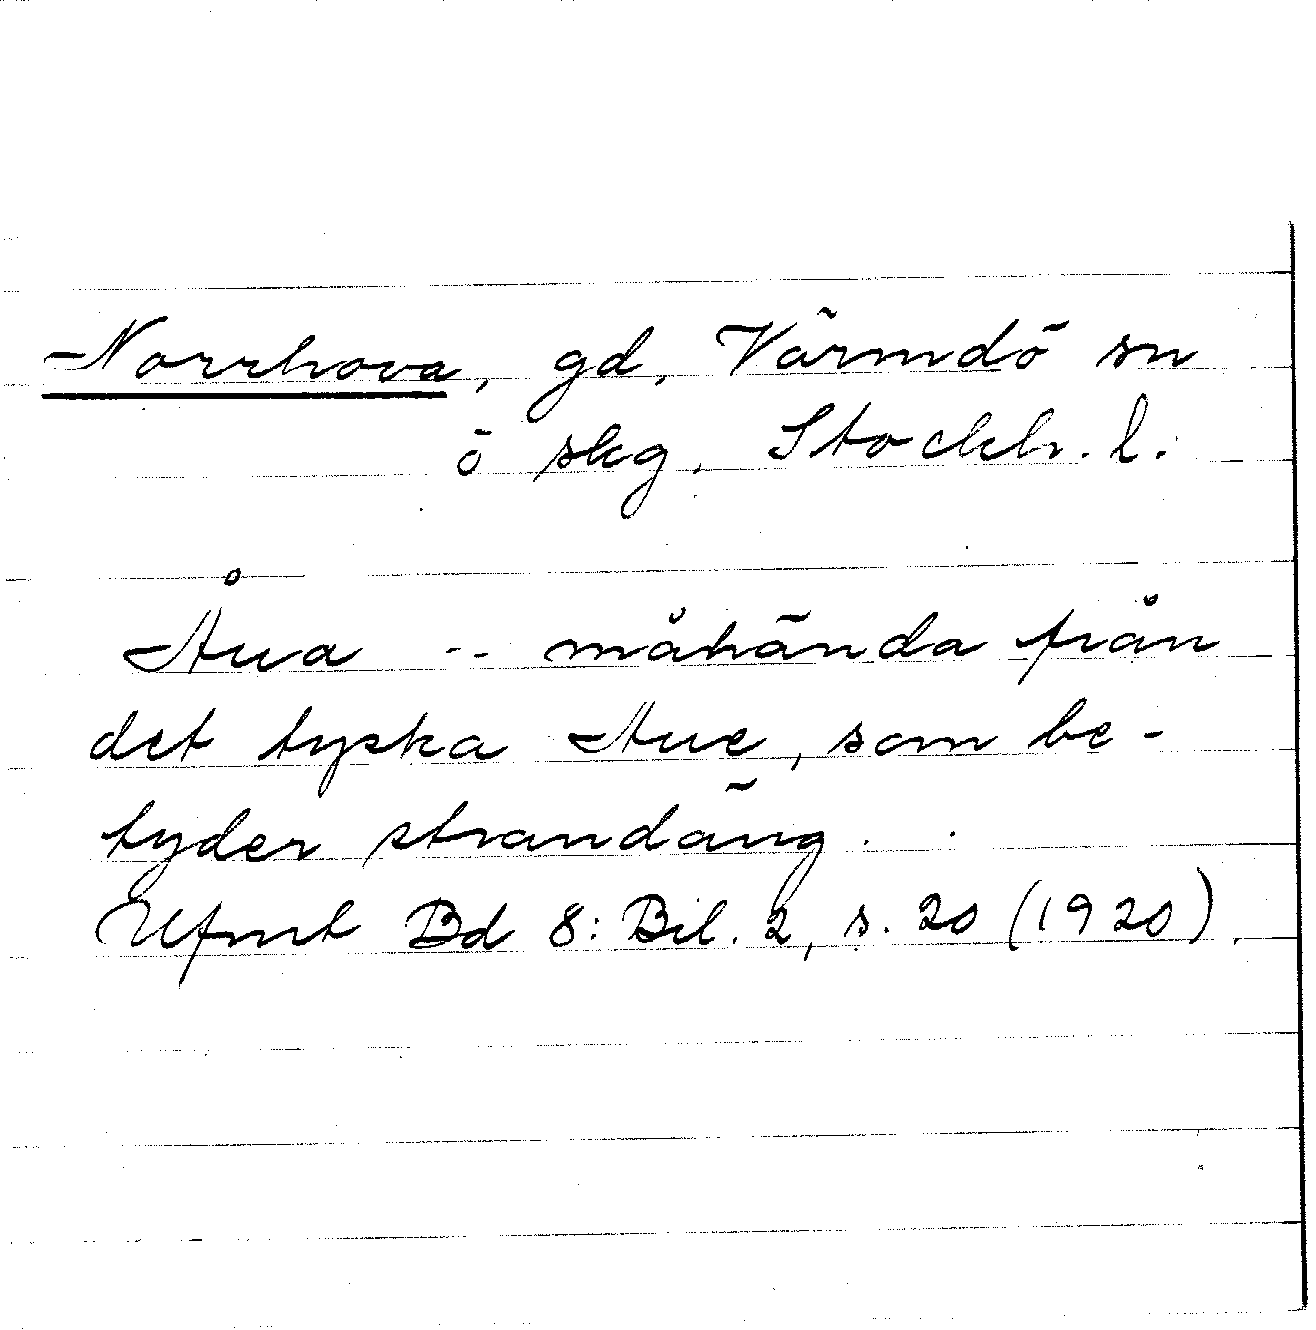 Norrhova, gd, Värmdö sn
ö skg, Stockh. l.
Åua -- måhända från
det tyska Aue, som be-
tyder strandäng.
Ufmt Bd 8: Bil. 2, s. 20 (1920).